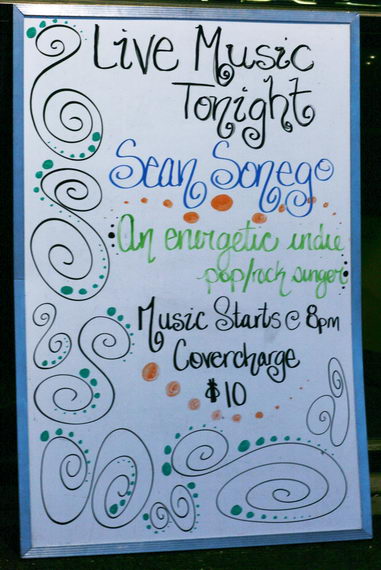 Live Music
Tonight
Sean Sonego
An energetic indie
pop/rock singer
Music Starts @ 8pm
Covercharge
$10